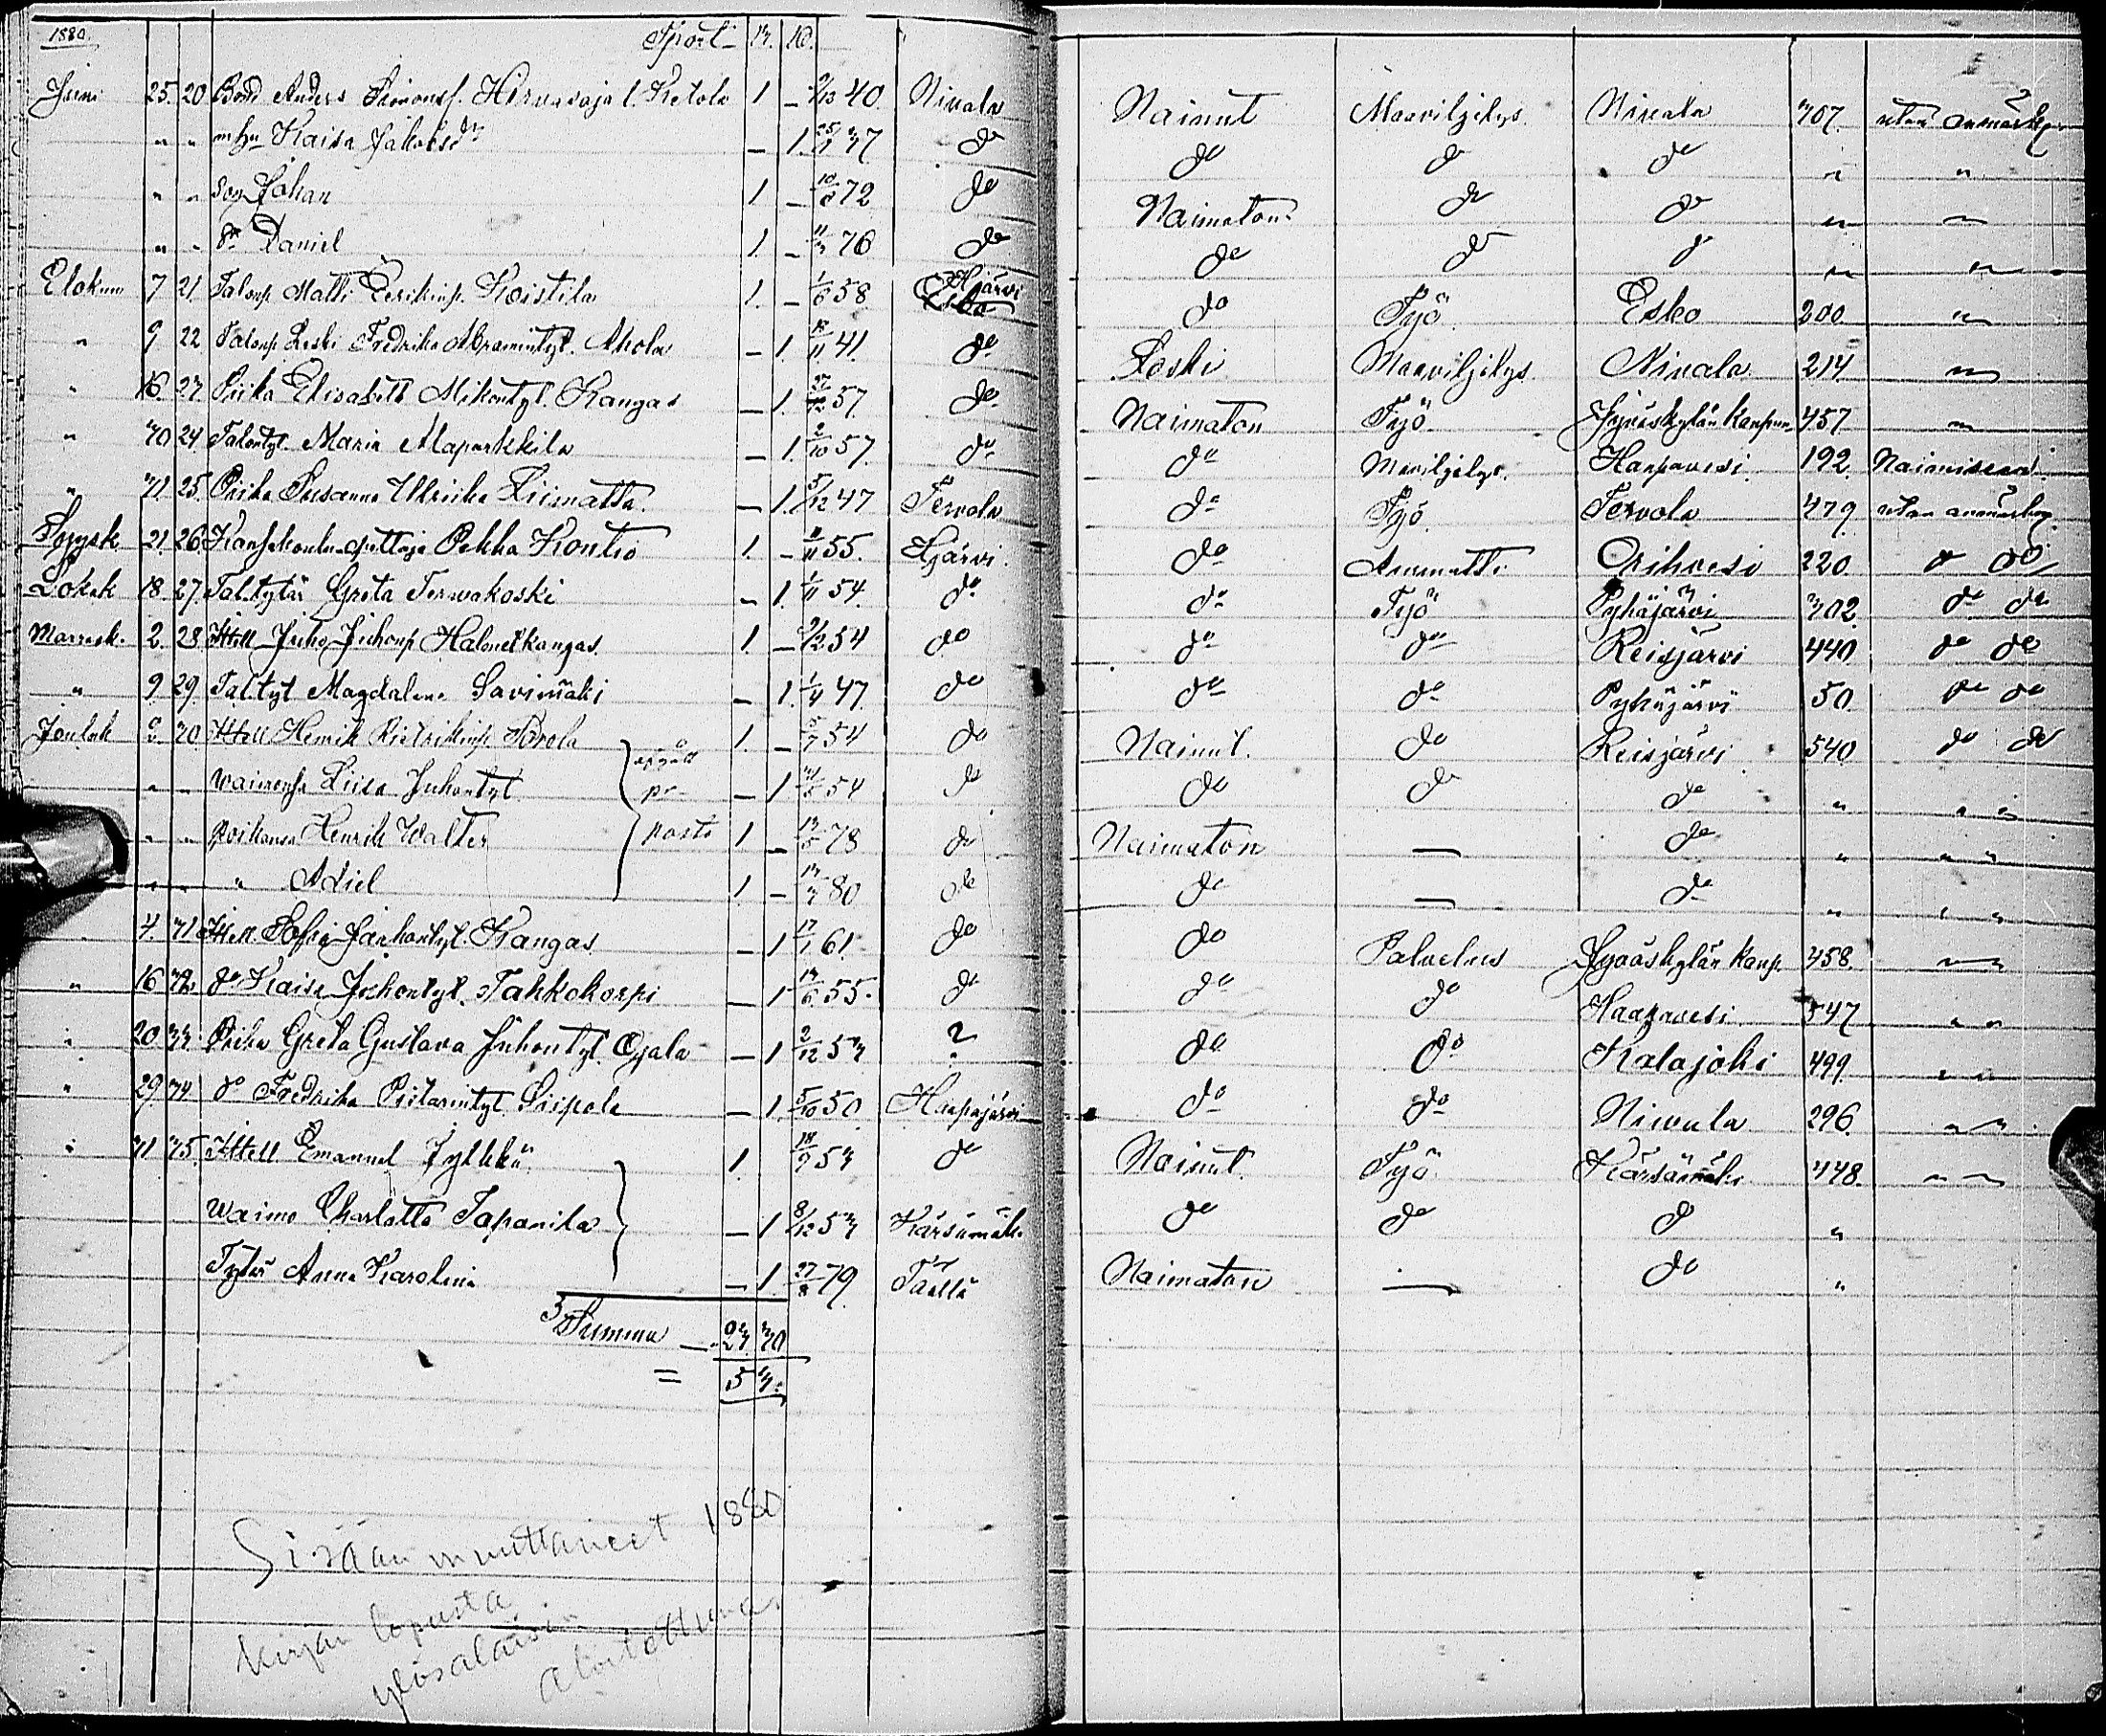 1880. Sport. M. Q.
Juni 25. 20 Bond. Anders Simonss. Hirvasoja l. Ketola 1 – 40 Nivala Nainut Maaviljelys Nivala 307. utan anmärkn.
" " m hu Kaisa Jakobsdr – 1. 25 37 do do do do " "
" " Son Johan 1 – 10 72 do Naimaton do do " "
" " dn Daniel 1. – 11/3 76 do do do do " "
Elokuu 7 21. Talonp. Matti Eerikinp. Koistila 1. – 1/6 58 Hjärvi do Työ Esko 200 "
" 9 22 Talonp. Leski Fredrika Abramintyt. Ahola – 1. 41. do Leski Maaviljelys Nivala 214. "
" 16. 23. Piika Elisabett Mikontyt. Kangas – 1. 57. do Naimaton Työ Jyväskylän kaupun. 457. "
" 30 24. Talontyt. Maria Alaparkkila – 1. 2/10 57. do do Maviljelys. Haapavesi. 192. Naimisessa
" 31. 25. Piika Susanna Ulriika Liimatta. – 1. 5/12 47 Tervola do Työ. Tervola 479. utan anmärkn.
Syysk. 21. 26 Kansakoulunopettaja Pekka Kontio 1. – 55. Hjärvi. do Ammatti Orihvesi 220. do do
Lokak 18. 27. Tal. tytär Greta Terwakoski – 1. 1/11 54. do do Työ Pyhäjärvi 302. do do
Marrask. 2. 28. Ittell. Juho Juhonp. Halmetkangas. 1. – 2/2 54 do do do Reisjärvi 440. do do
" 9. 29. Taltyt. Magdalena Savimäki – 1. 1/4 47. do do do Pyhäjärvi 50. do do
Jouluk 2. 30 Ittell Henrik Pietrikinp. Parola 1. – 5/7 54 do Nainut. do Reisjärvi. 540 do do
" " waimonsa Liisa Juhontyt. pr – 1 54 do do do do " " "
" " Poikansa Henrik Walter posto 1 – 13 78 do Naimaton — do " " "
" " " Adiel 1 – 13/3 80 do do — do " " "
4. 31 Ittell. Sofia Jaakontyt. Kangas – 1 17/1 61. do do Palvelus Jyväskylän kaup. 458. "
" 16 32. do Kaisa Juhontyt. Tahkokorpi – 1 13/6 55. do do do Haapavesi 547 " "
" 20 33. Piika Greta Gustava Juhontyt. Ojala – 1 2/12 53 ? do do Kalajoki 499. " "
" 29. 34. do Fredrika Pietarintyt. Siipola – 1. 5/10 50 Haapajärvi do do Nivala 296. " "
" 31 35. Ittell Emanuel Jylkkä 1. 18/9 53 do Nainut. Työ Kärsämäki 448. " "
Waimo Charlotta Tapanila – 1 8/12 53 Kärsämäk. do do do "
Tytär Anna Karolina – 1 27/8 79. Täällä Naimaton — do "
Summa – 23. 30.
= 53.
Sisään muuttaneet 1880
Kirjan lopusta
ylösalaisin
aloitettuna.